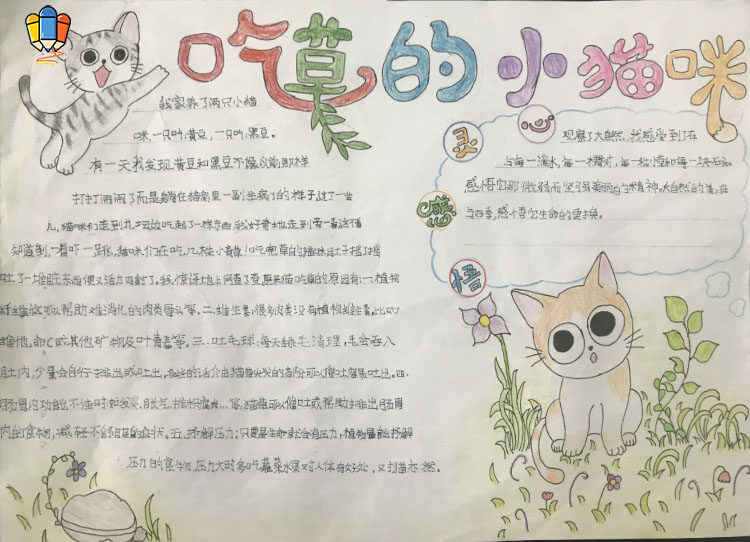 吃草的小猫咪
我家养了两只小猫
咪,一只叫黄豆,一只叫黑豆。
有一天我发现黄豆和黑豆不像以前那样
打打闹闹了而是躺在猫窝里一副生病了的样子,过了一会
儿,猫咪们走到花坛边吃起了一样东西,我好奇地走到旁一看这不
知道到,一看吓一跳,猫咪们在吃几株小黄草!吃完草的猫咪肚子摇摇
吐了一堆脏东西便又活力四射了。我惊讶地上网查了查,原来猫吃草的原因有:一、植物
纤维这可以帮助难消化的肉类骨头等。二、维生素:很多肉类没有植物维生素,比如
维他命C或其他矿物及叶青素等。三、吐毛球:每天舔毛清理,毛会吞入
肚内,少量会自行排出或吐出,多的话
肠胃内功能不佳时如
内的食物,减轻不舒服的症状。五、舒解压力:只要是生命就会有压力,植物是能舒解
压力的食物.压力大时多吃蔬菜水果对人体有好处,又
灵心感悟
观察了大自然,我感受到了在
与每一滴水,每一棵树,每一粒
感悟它那微弱而坚强美丽的精神。大自然的美,在
与四季,感悟它生命的更换。